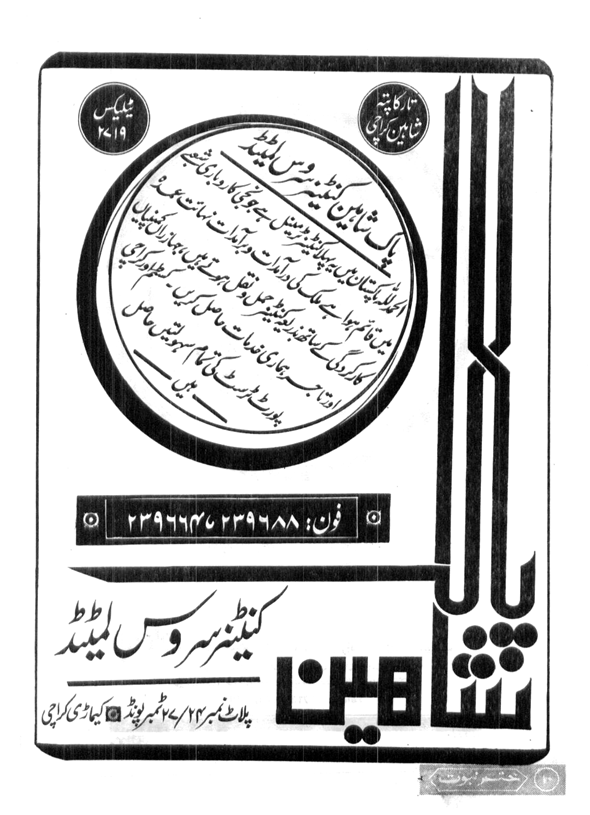 تار کا پتہ
شاہین کراچی
ٹیلیکس
۲۷۱۹
پاک شاہین کنٹینر سروس لمٹیڈ
الحمدللہ پاکستان میں یہ پہلا کنٹینر ٹرمینل ہے جو نجی کاروباری شعبے
میں قائم ہوا ہے ملک کی درآمدات وبرآمدات نہایت عمدہ
کارکردگی کے ساتھ بذریعہ کنٹینر حمل ونقل ہوتے ہیں، جہازراں کمپنیاں
اور تاجر ہماری خدمات حاصل کریں۔ کسٹم اور کراچی
پورٹ ٹرسٹ کی تمام سہولتیں حاصل
ہیں
فون: ۲۳۹۶۸۸ تا ۲۳۹۶۶۴
پاک
شاہین
کنٹینر سروس لمٹیڈ
پلاٹ نمبر ۲۷/۲۴ ٹمبر پونڈ کیماڑی کراچی
ختم نبوت